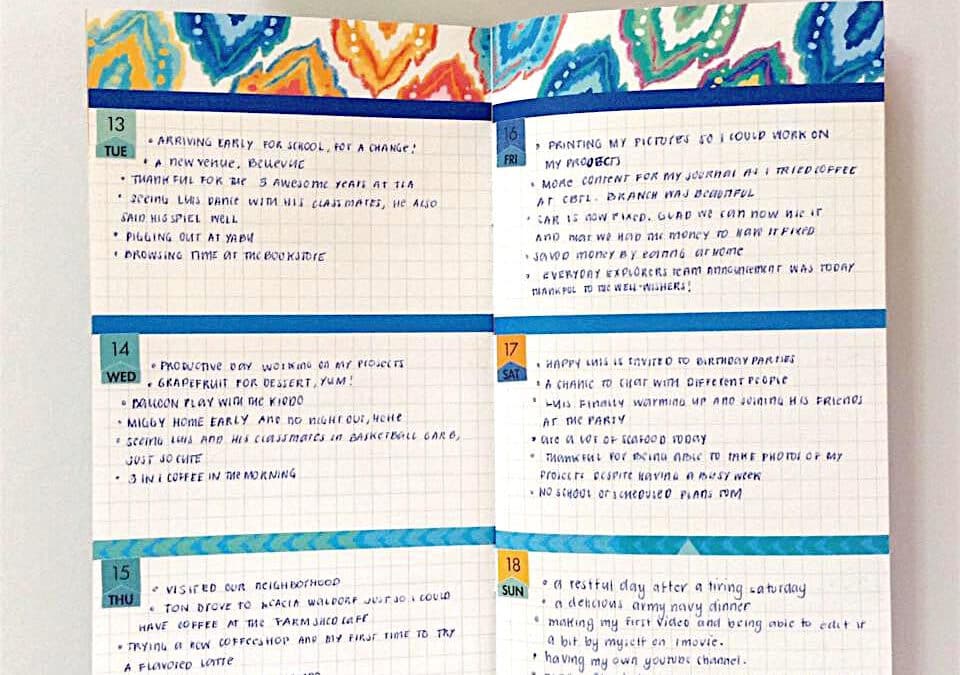 13
TUE
• ARRIVING EARLY FOR SCHOOL, FOR A CHANGE!
• A NEW VENUE, BELLEVUE
• THANKFUL FOR THE 3 AWESOME YEARS AT TLA
• SEEING LUIS DANCE WITH HIS CLASSMATES, HE ALSO
SAID HIS SPIEL WELL
• PIGGING OUT AT YABU
• BROWSING TIME AT THE BOOKSTORE
14
WED
• PRODUCTIVE DAY WORKING ON MY PROJECTS
• GRAPEFRUIT FOR DESSERT, YUM!
• BALLOON PLAY WITH THE KIDDO
• MIGGY HOME EARLY AND NO NIGHT OUT, HEHE
• SEEING LUIS AND HIS CLASSMATES IN BASKETBALL GARB,
JUST SO CUTE
• 3 IN 1 COFFEE IN THE MORNING
15
THU
• VISITED OUR NEIGHBORHOOD
• TON DROVE TO ACACIA WALDORF JUST SO I COULD
HAVE COFFEE AT THE FARM SHED CAFE
• TRYING A NEW COFFEESHOP AND MY FIRST TIME TO TRY
A FLAVORED LATTE
16
FRI
• PRINTING MY PICTURES SO I COULD WORK ON
MY PROJECTS
• MORE CONTENT FOR MY JOURNAL AS I TRIED COFFEE
AT CBTL. BRANCH WAS BEAUTIFUL
• CAR IS NOW FIXED. GLAD WE CAN NOW USE IT
AND THAT WE HAD THE MONEY TO HAVE IT FIXED
• SAVED MONEY BY EATING AT HOME
• EVERYDAY EXPLORERS TEAM ANNOUNCEMENT WAS TODAY
THANKFUL TO THE WELL-WISHERS!
17
SAT
• HAPPY LUIS IS INVITED TO BIRTHDAY PARTIES
• A CHANCE TO CHAT WITH DIFFERENT PEOPLE
• LUIS FINALLY WARMING UP AND JOINING HIS FRIENDS
AT THE PARTY
• ATE A LOT OF SEAFOOD TODAY
• THANKFUL FOR BEING ABLE TO TAKE PHOTOS OF MY
PROJECTS DESPITE HAVING A BUSY WEEK
• NO SCHOOL OR SCHEDULED PLANS TOM
18
SUN
• a restful day after a tiring saturday
• a delicious army navy dinner
• making my first video and being able to edit it
a bit by myself on imovie.
• having my own youtube channel.